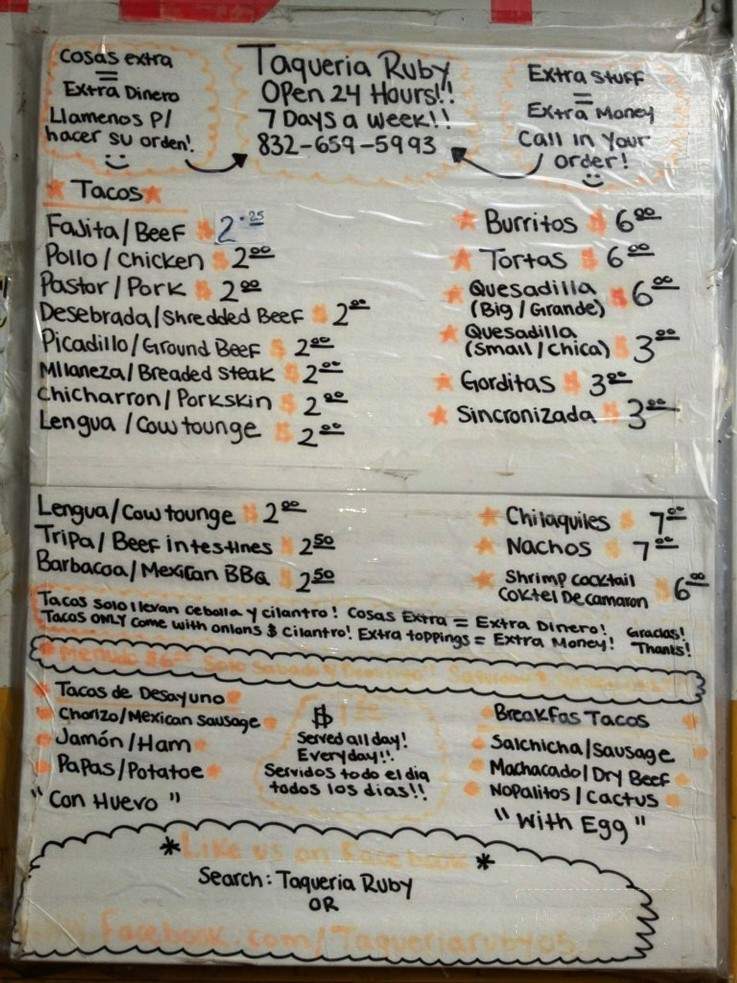 Cosas extra
=
Extra Dinero
Llamenos P/
hacer su orden!
Taqueria Ruby
Open 24 Hours!!
7 Days a week!!
832-659-5993
Extra stuff
=
Extra Money
Call in Your
order!
Tacos
Fajita/Beef $2.25
Pollo/chicken $2.00
Pastor/Pork $2.00
Desebrada/Shredded Beef $2.00
Picadillo/Ground Beef $2.00
Milaneza/Breaded steak $2.00
Chicharron/Porkskin $2.00
Lengua/Cow tounge $2.00
Burritos $6.00
Tortas $6.00
Quesadilla
(Big/Grande) $6.00
Quesadilla
(Small/Chica) $3.00
Gorditas $3.00
Sincronizada $3.00
Lengua/Cow tounge $2.00
Tripa/Beef intestines $2.50
Barbacoa/Mexican BBQ $2.50
Chilaquiles $7.00
Nachos $7.00
Shrimp cocktail
Coktel De camaron $6.00
Tacos solo llevan cebolla y cilantro! Cosas Extra = Extra Dinero! Gracias!
Tacos ONLY come with onions & cilantro! Extra toppings = Extra Money! Thanks!
Menudo $6.00 Solo Sabado y Domingo!
Tacos de Desayuno
Chorizo/Mexican sausage
Jamón/Ham
Papas/Potatoe
"Con Huevo"
$
Served all day!
Everyday!!
Servidos todo el dia
todos los dias!!
Breakfas Tacos
Salchicha/Sausage
Machacado/Dry Beef
Nopalitos/Cactus
"With Egg"
*Like us on Facebook*
Search: Taqueria Ruby
OR
Facebook.com/Taqueriaruby05